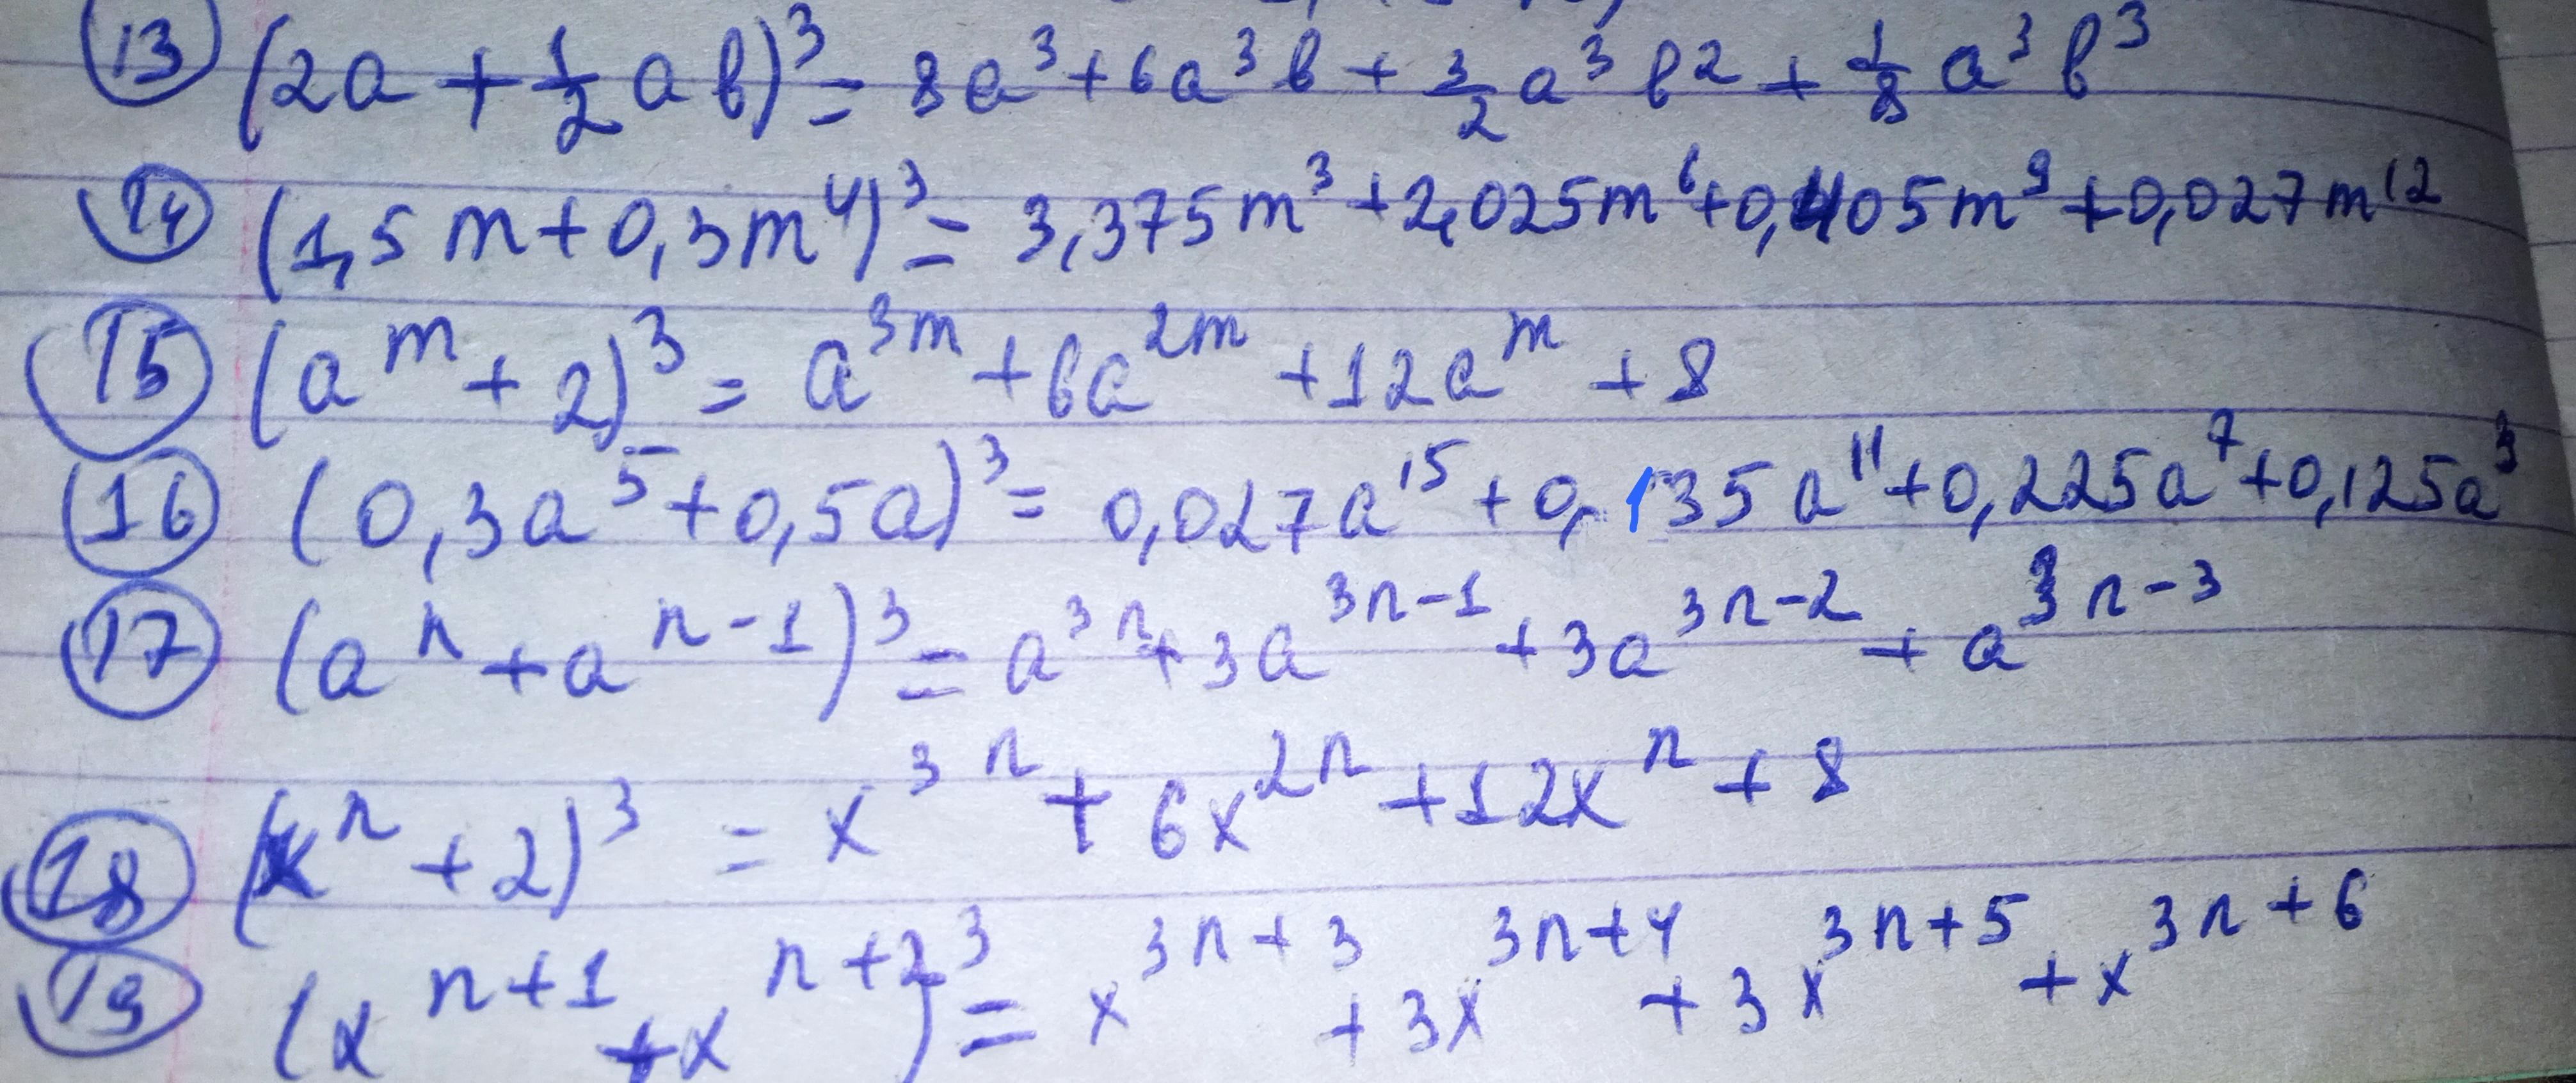 13 (2a + 1/2 ab)³ = 8a³ + 6a³b + 3/2 a³b² + 1/8 a³b³
14 (1,5m + 0,3m⁴)³ = 3,375m³ + 2,025m⁶ + 0,405m⁹ + 0,027m¹²
15 (aᵐ + 2)³ = a³ᵐ + 6a²ᵐ + 12aᵐ + 8
16 (0,3a⁵ + 0,5a)³ = 0,027a¹⁵ + 0,135a¹¹ + 0,225a⁷ + 0,125a³
17 (aⁿ + aⁿ⁻¹)³ = a³ⁿ + 3a³ⁿ⁻¹ + 3a³ⁿ⁻² + a³ⁿ⁻³
18 (xⁿ + 2)³ = x³ⁿ + 6x²ⁿ + 12xⁿ + 8
19 (xⁿ⁺¹ + xⁿ⁺²)³ = x³ⁿ⁺³ + 3x³ⁿ⁺⁴ + 3x³ⁿ⁺⁵ + x³ⁿ⁺⁶